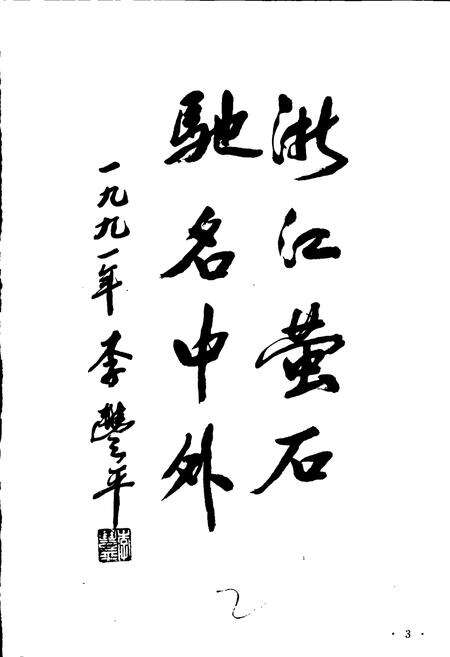 浙江萤石
馳名中外
一九九一年 李豐平
· 3 ·